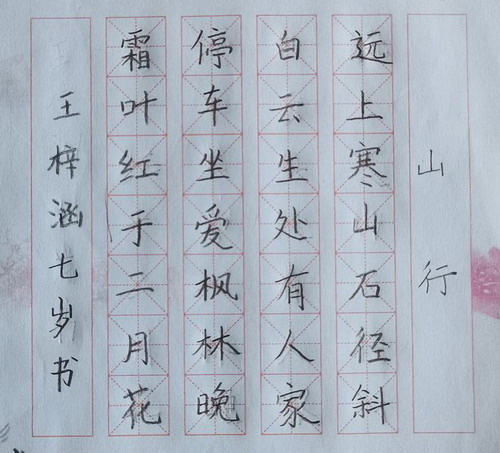 山行
远上寒山石径斜
白云生处有人家
停车坐爱枫林晚
霜叶红于二月花
王梓涵七岁书